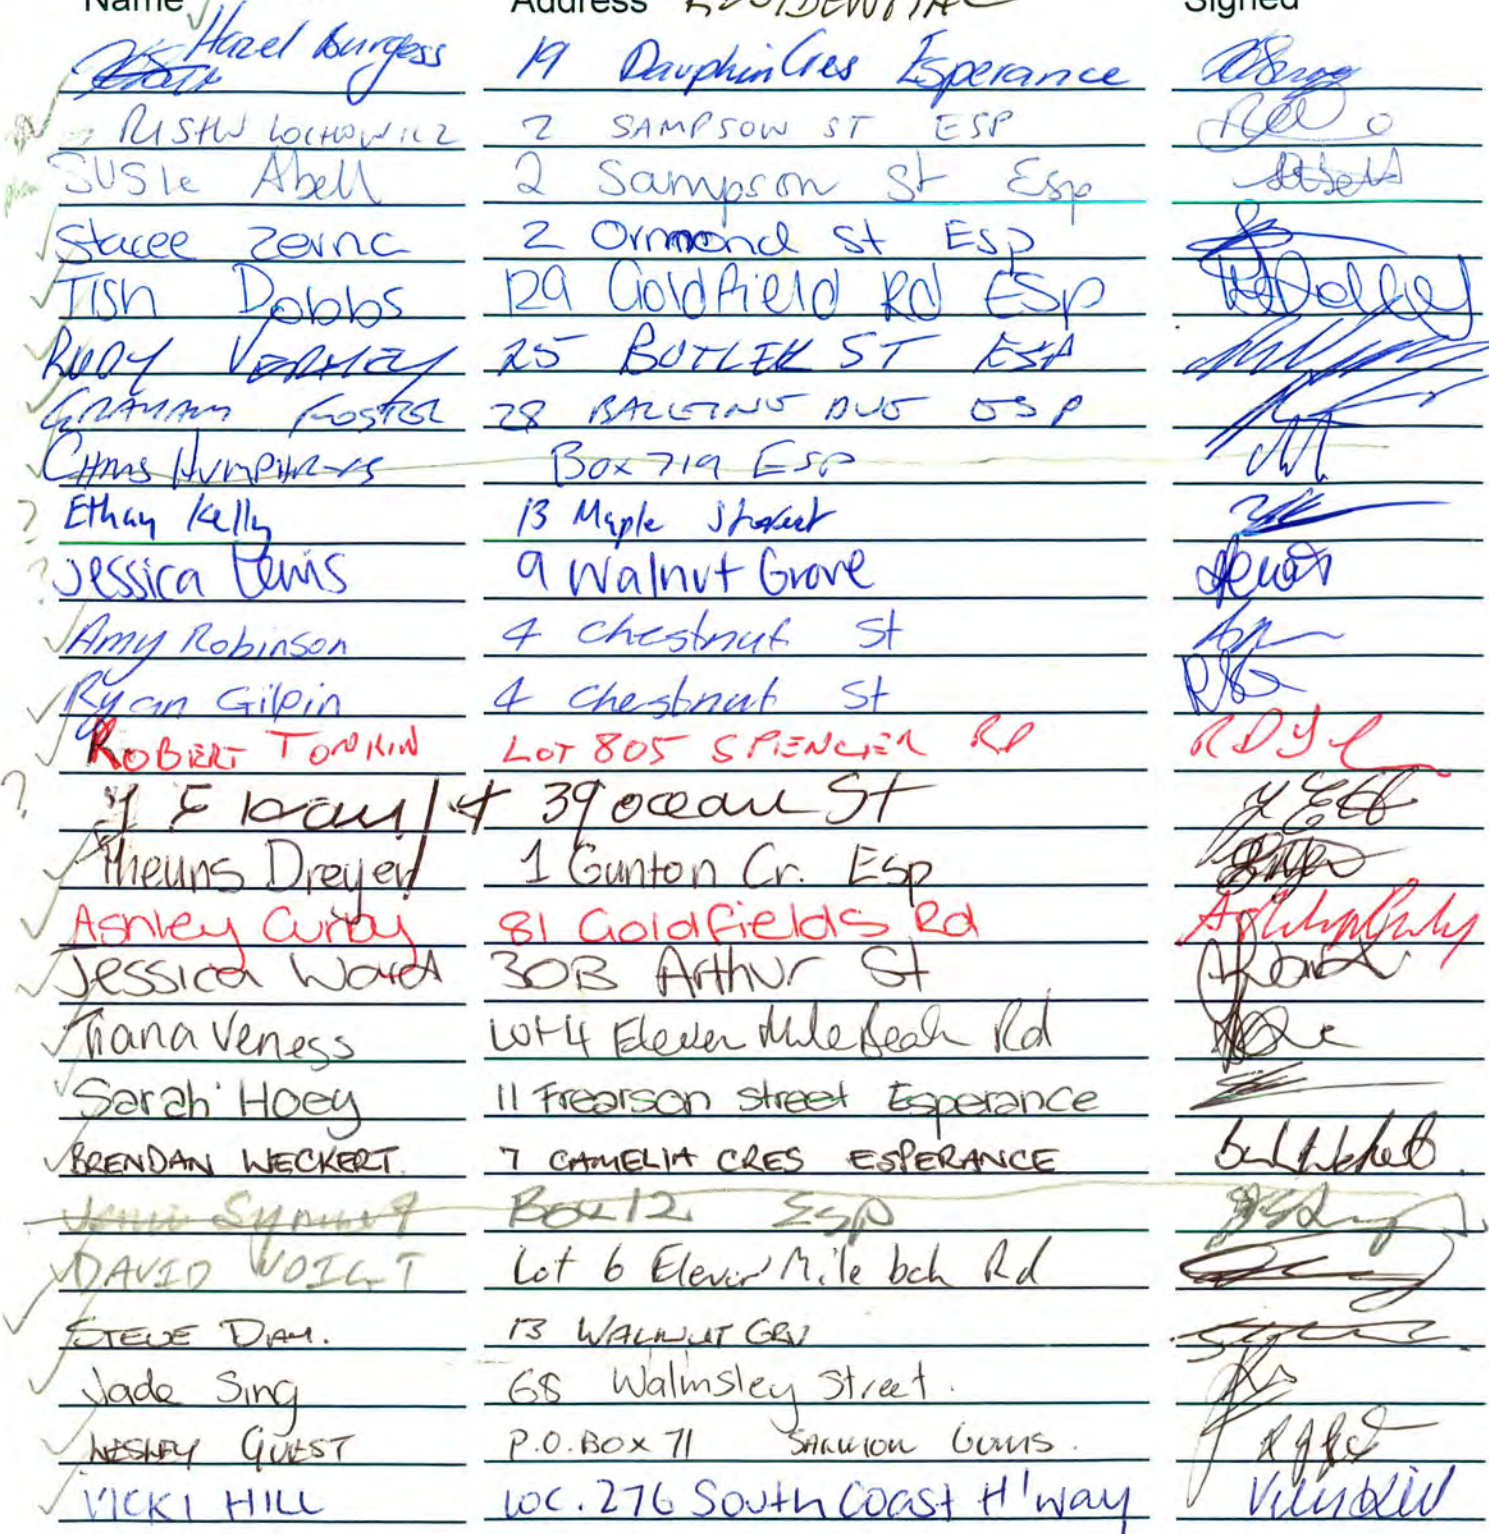 Name Address RESIDENTIAL Signed
Hazel Burgess 19 Dauphin Cres Esperance
2 SAMPSON ST ESP
Susie Abell 2 Sampson St Esp
Stacee Zernc 2 Ormond St Esp
Tish Dobbs 129 Goldfield Rd ESP
RUDY VERHEY 25 BUTLER ST ESP
GRAHAM FOSTER 28 ESP
CHRIS HUMPHRYS Box 719 ESP
? Ethan Kelly 13 Maple Street
? Jessica Lewis 9 Walnut Grove
Amy Robinson 4 Chestnut St
Ryan Gilpin 4 Chestnut St
ROBERT TONKIN LOT 805 SPENCER RD
? 39 ocean St
Theuns Dreyer 1 Gunton Cr. Esp
Ashley Curby 81 Goldfields Rd
Jessica Ward 30B Arthur St
Tiana Veness Lot 4 Eleven Mile Beach Rd
Sarah Hoey 11 Frearson street Esperance
BRENDAN WECKERT. 7 CAMELIA CRES ESPERANCE
Box 12 Esp
DAVID VOIGT Lot 6 Eleven Mile bch Rd
STEVE DAY. 13 WALNUT GRV
Jade Sing 68 Walmsley Street.
WESLEY GUEST P.O. BOX 71 SALMON GUMS.
VICKI HILL LOC. 276 South Coast H'way